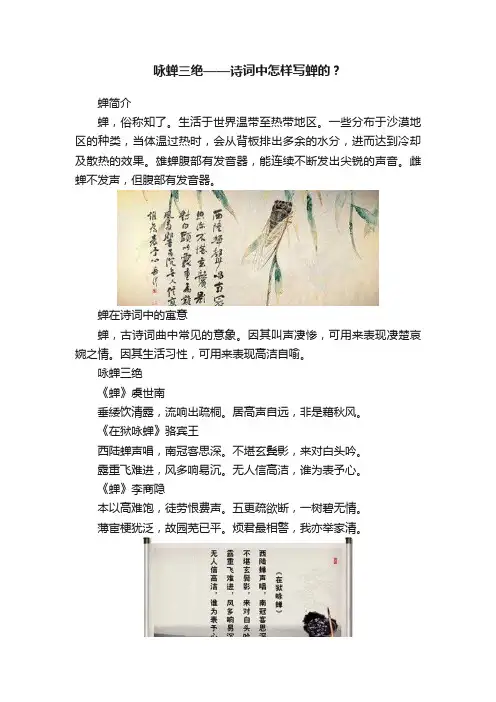 咏蝉三绝——诗词中怎样写蝉的？
蝉简介
蝉，俗称知了。生活于世界温带至热带地区。一些分布于沙漠地
区的种类，当体温过热时，会从背板排出多余的水分，进而达到冷却
及散热的效果。雄蝉腹部有发音器，能连续不断发出尖锐的声音。雌
蝉不发声，但腹部有发音器。
蝉在诗词中的寓意
蝉，古诗词曲中常见的意象。因其叫声凄惨，可用来表现凄楚哀
婉之情。因其生活习性，可用来表现高洁自喻。
咏蝉三绝
《蝉》虞世南
垂緌饮清露，流响出疏桐。居高声自远，非是藉秋风。
《在狱咏蝉》骆宾王
西陆蝉声唱，南冠客思深。不堪玄鬓影，来对白头吟。
露重飞难进，风多响易沉。无人信高洁，谁为表予心。
《蝉》李商隐
本以高难饱，徒劳恨费声。五更疏欲断，一树碧无情。
薄宦梗犹泛，故园芜已平。烦君最相警，我亦举家清。
《在狱咏蝉》
西陆蝉声唱，南冠客思深
不堪玄鬓影，来对白头
露重飞难进，风多响易
无人信高洁，谁为表予心